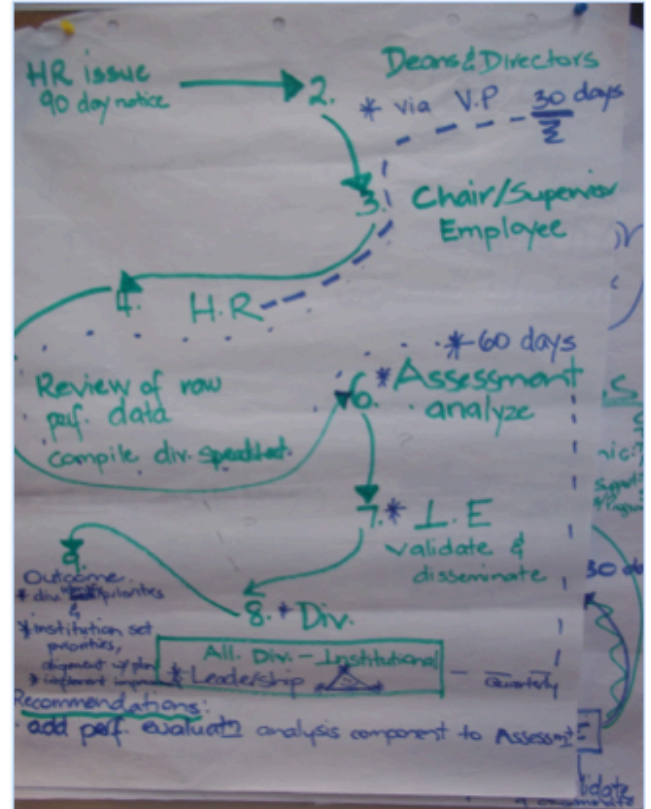 HR issue
90 day notice
2.
Deans & Directors
* via V.P 30 days
3.
Chair/Supervisor
Employee
4. H.R
*60 days
Review of raw
perf. data
compile div.
6. *Assessment
analyze
7.* I.E
validate &
disseminate
30
9.
Outcome
* div. priorities
&
* institution set
priorities,
alignment w/ plan
* implement
8. * Div.
All. Div. - Institutional
* Leadership
Quarterly
Recommendations:
add perf. evaluatn analysis component to Assessmt